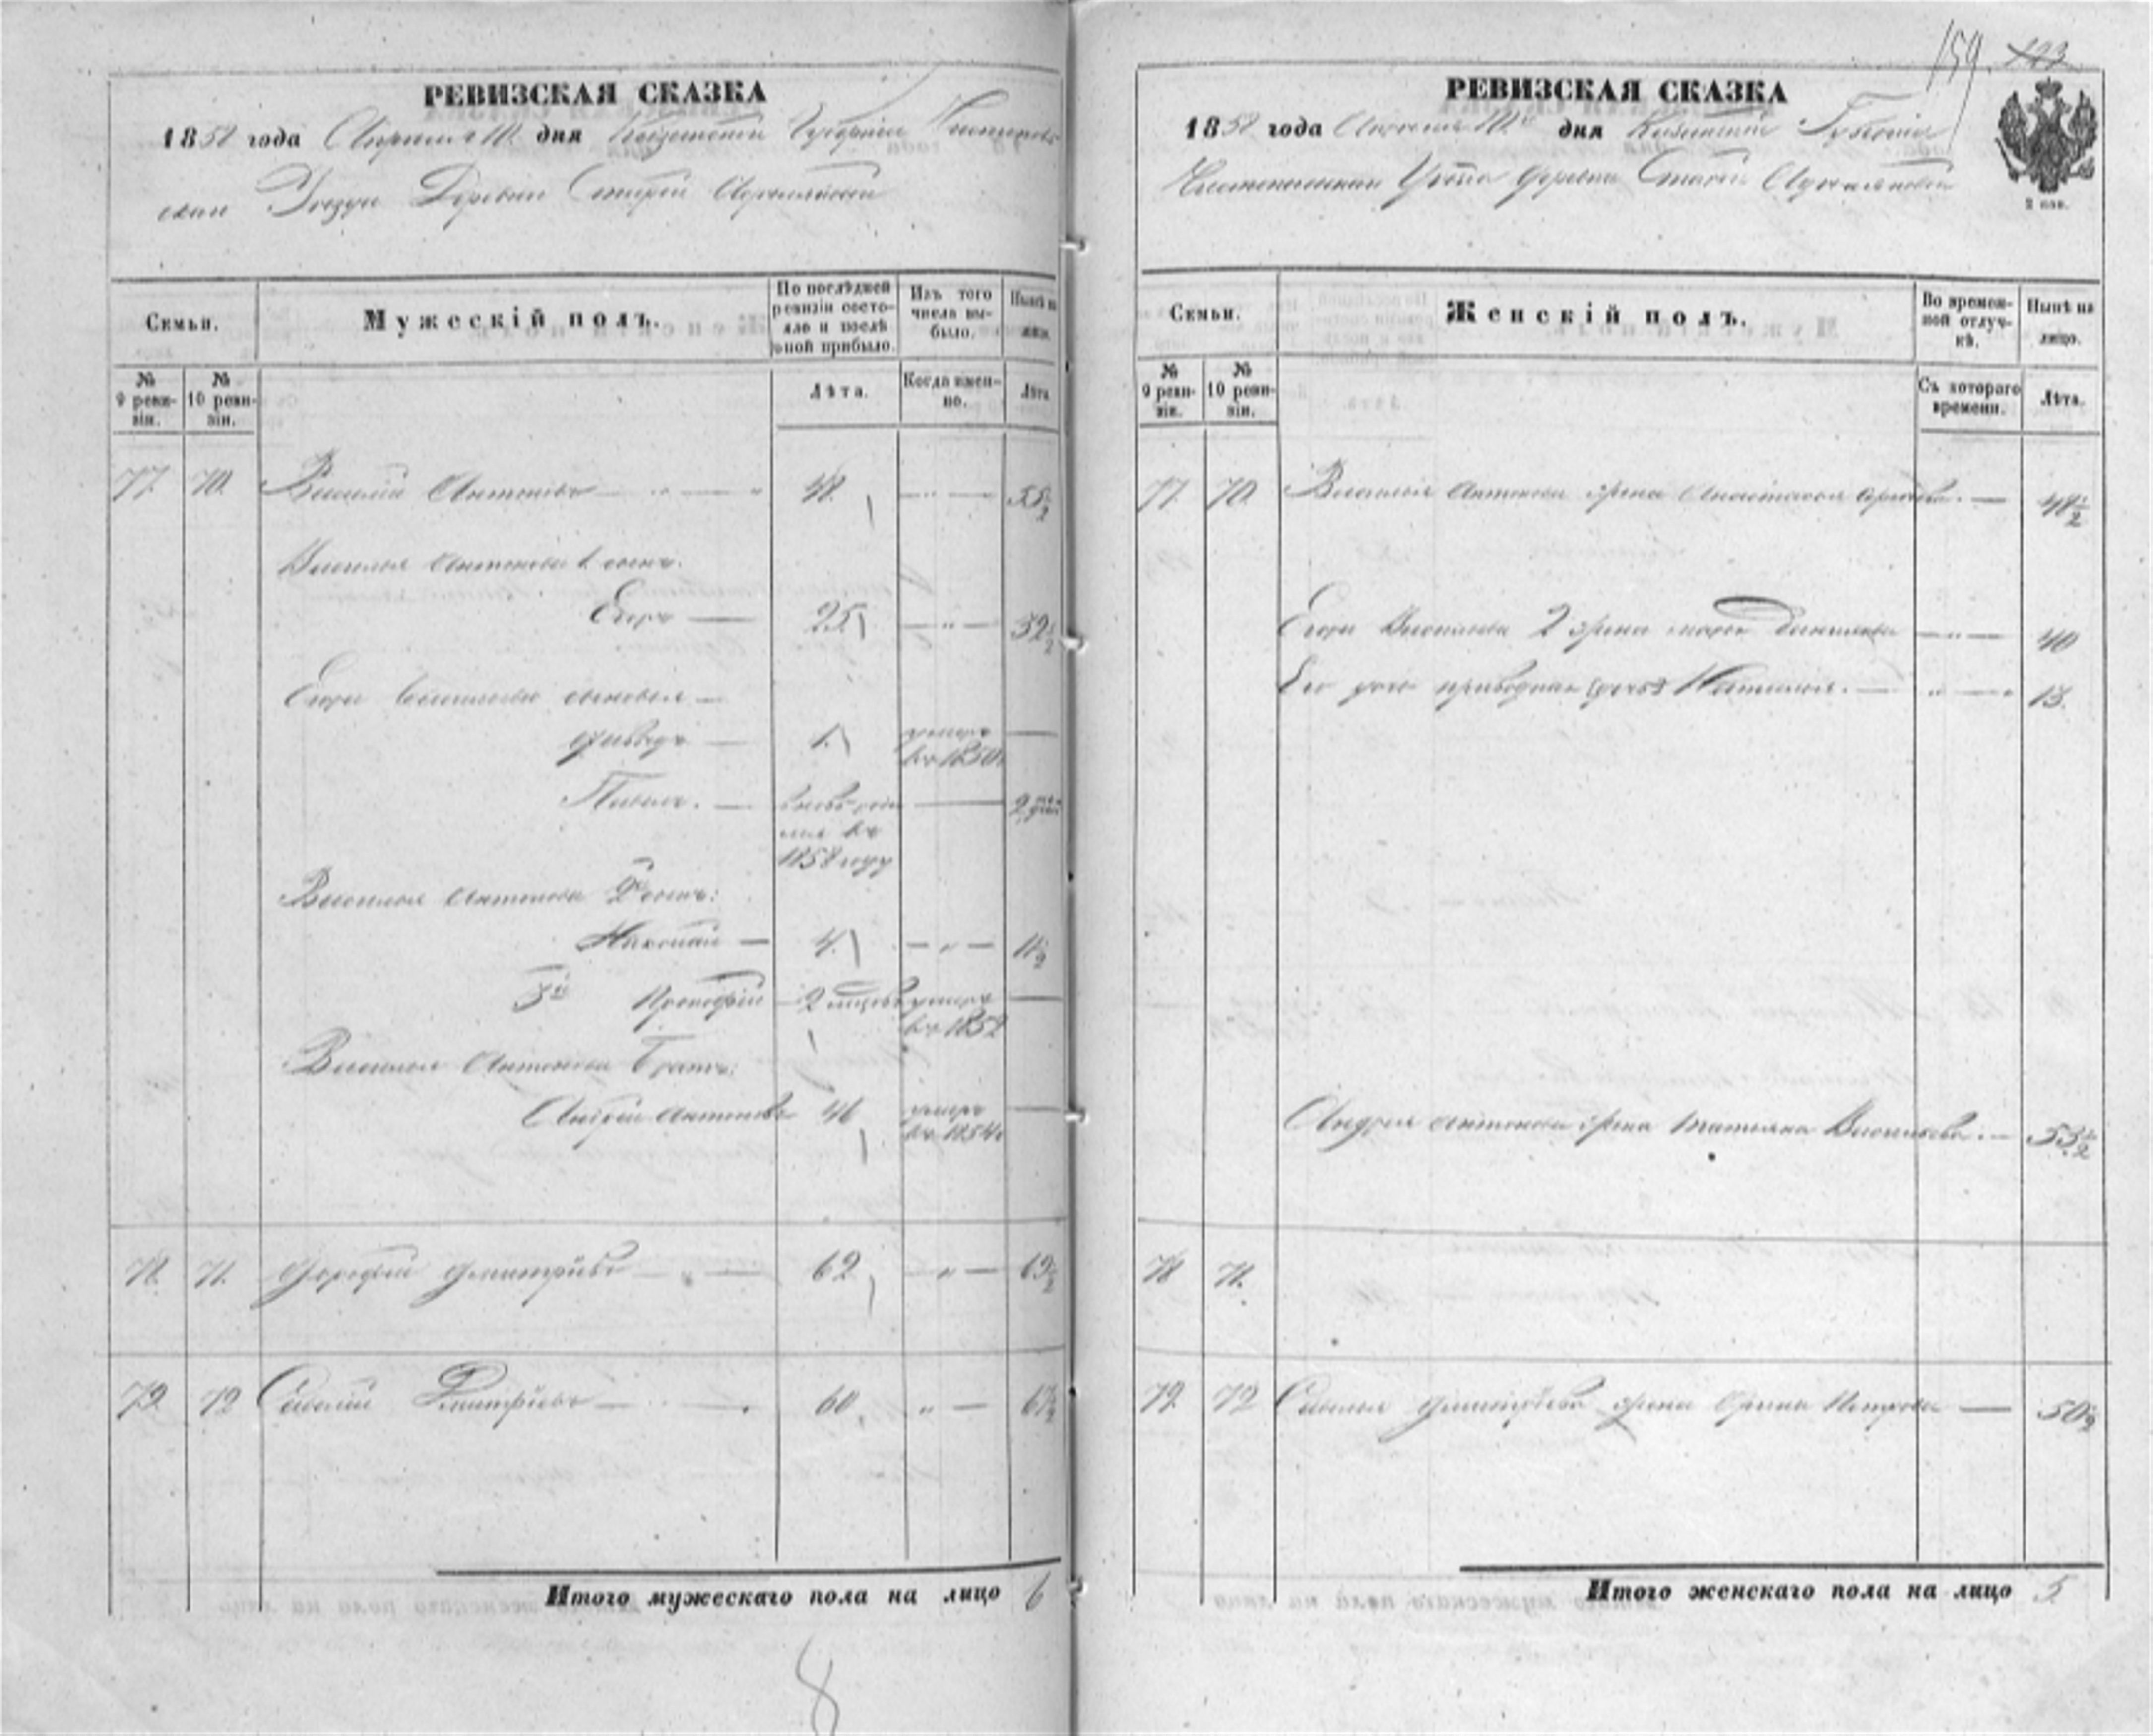 РЕВИЗСКАЯ СКАЗКА
1858 года Апреля 10 дня Казанской Губернии Чистополь
скаго Уезда Деревни Старой
Семьи.
Мужескій полъ.
По послѣдней ревизіи состояло и послѣ оной прибыло.
Изъ того числа выбыло.
Нынѣ на лицо.
№ 9 ревизіи.
№ 10 ревизіи.
Лѣта.
Когда именно.
Лѣта.
77. 70. Василій Антоновъ — " — " 48. — " — 55½
Василья Антонова 1 сынъ.
Егоръ — 25. — " — 32½
Егора Васильева сыновья —
Давыдъ — 1. умеръ въ 1850 —
Павелъ. — вновь рож — 2
въ
1858 году
Василья Антонова 2й сынъ:
Николай — 4. — " — 11½
3й Прокофій — 2 умеръ —
въ 1852
Василья Антонова братъ:
Андрей Антоновъ 46 умеръ —
въ 1854
78. 71. Дорофей Дмитріевъ — " — 62 — " — 69½
79. 72 Савелій Дмитріевъ — 60. " — 67½
Итого мужескаго пола на лицо 6
8
159. 123
РЕВИЗСКАЯ СКАЗКА
1858 года Апреля 10го дня Казанской Губерніи
Чистопольскаго Уезда деревни Старой
2 коп.
Семьи.
Женскій полъ.
Во временной отлучкѣ.
Нынѣ на лицо.
№ 9 ревизіи.
№ 10 ревизіи.
Съ котораго времени.
Лѣта.
77. 70. Василья Антонова жена Анастасья — 48½
Егора Васильева 2 жена Марья — " — 40
Его дочь Наталья. — " — 13.
Андрея Антонова жена Татьяна Васильева. — 53½
78 71.
79. 72 Савелья Дмитріева жена Ирина Петрова — 50½
Итого женскаго пола на лицо 5.